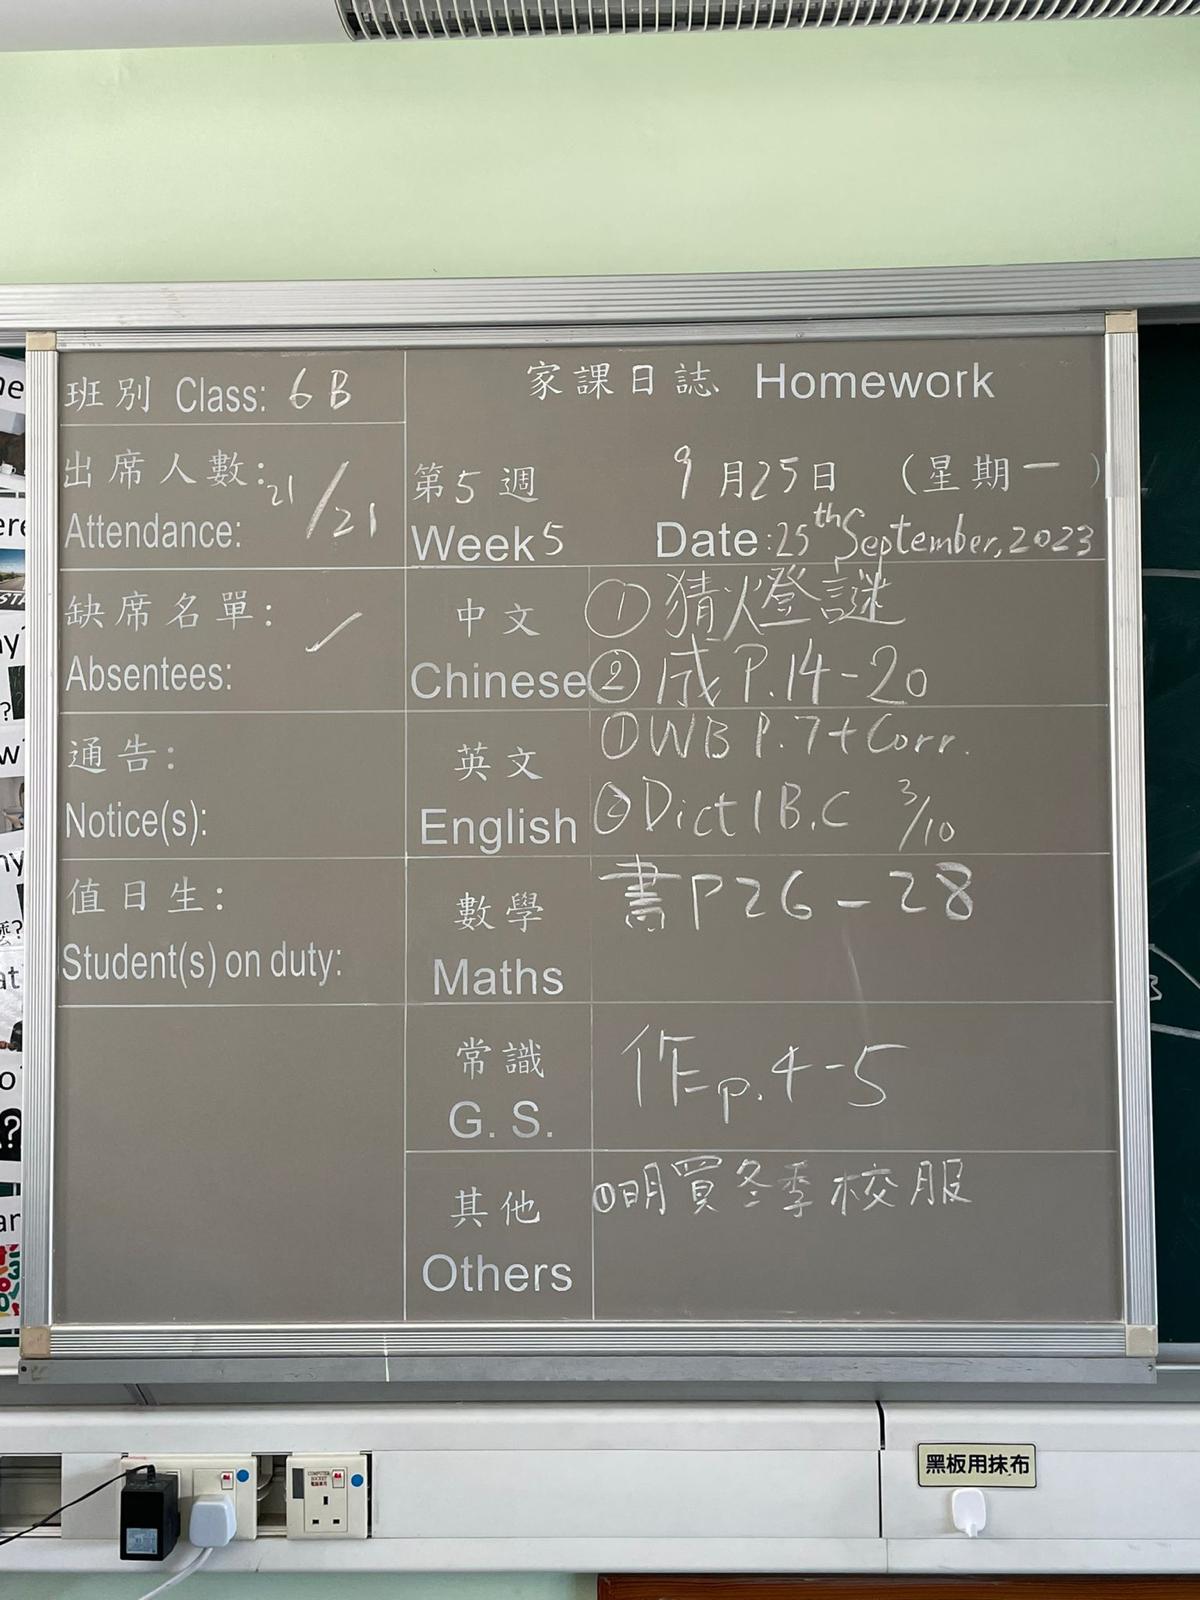 班別 Class: 6B
家課日誌 Homework
出席人數: 21/21
Attendance:
第5週 9月25日 (星期一)
Week 5 Date: 25th September, 2023
缺席名單: /
Absentees:
中文 ① 猜燈謎
Chinese ② 成 P.14-20
通告:
Notice(s):
英文 ① WB P.7 + Corr.
English ② Dict 1 B.C 3/10
值日生:
Student(s) on duty:
數學 書P26-28
Maths
常識 作p.4-5
G. S.
其他 ①明買冬季校服
Others
COMPUTER SOCKET
黑板用抹布